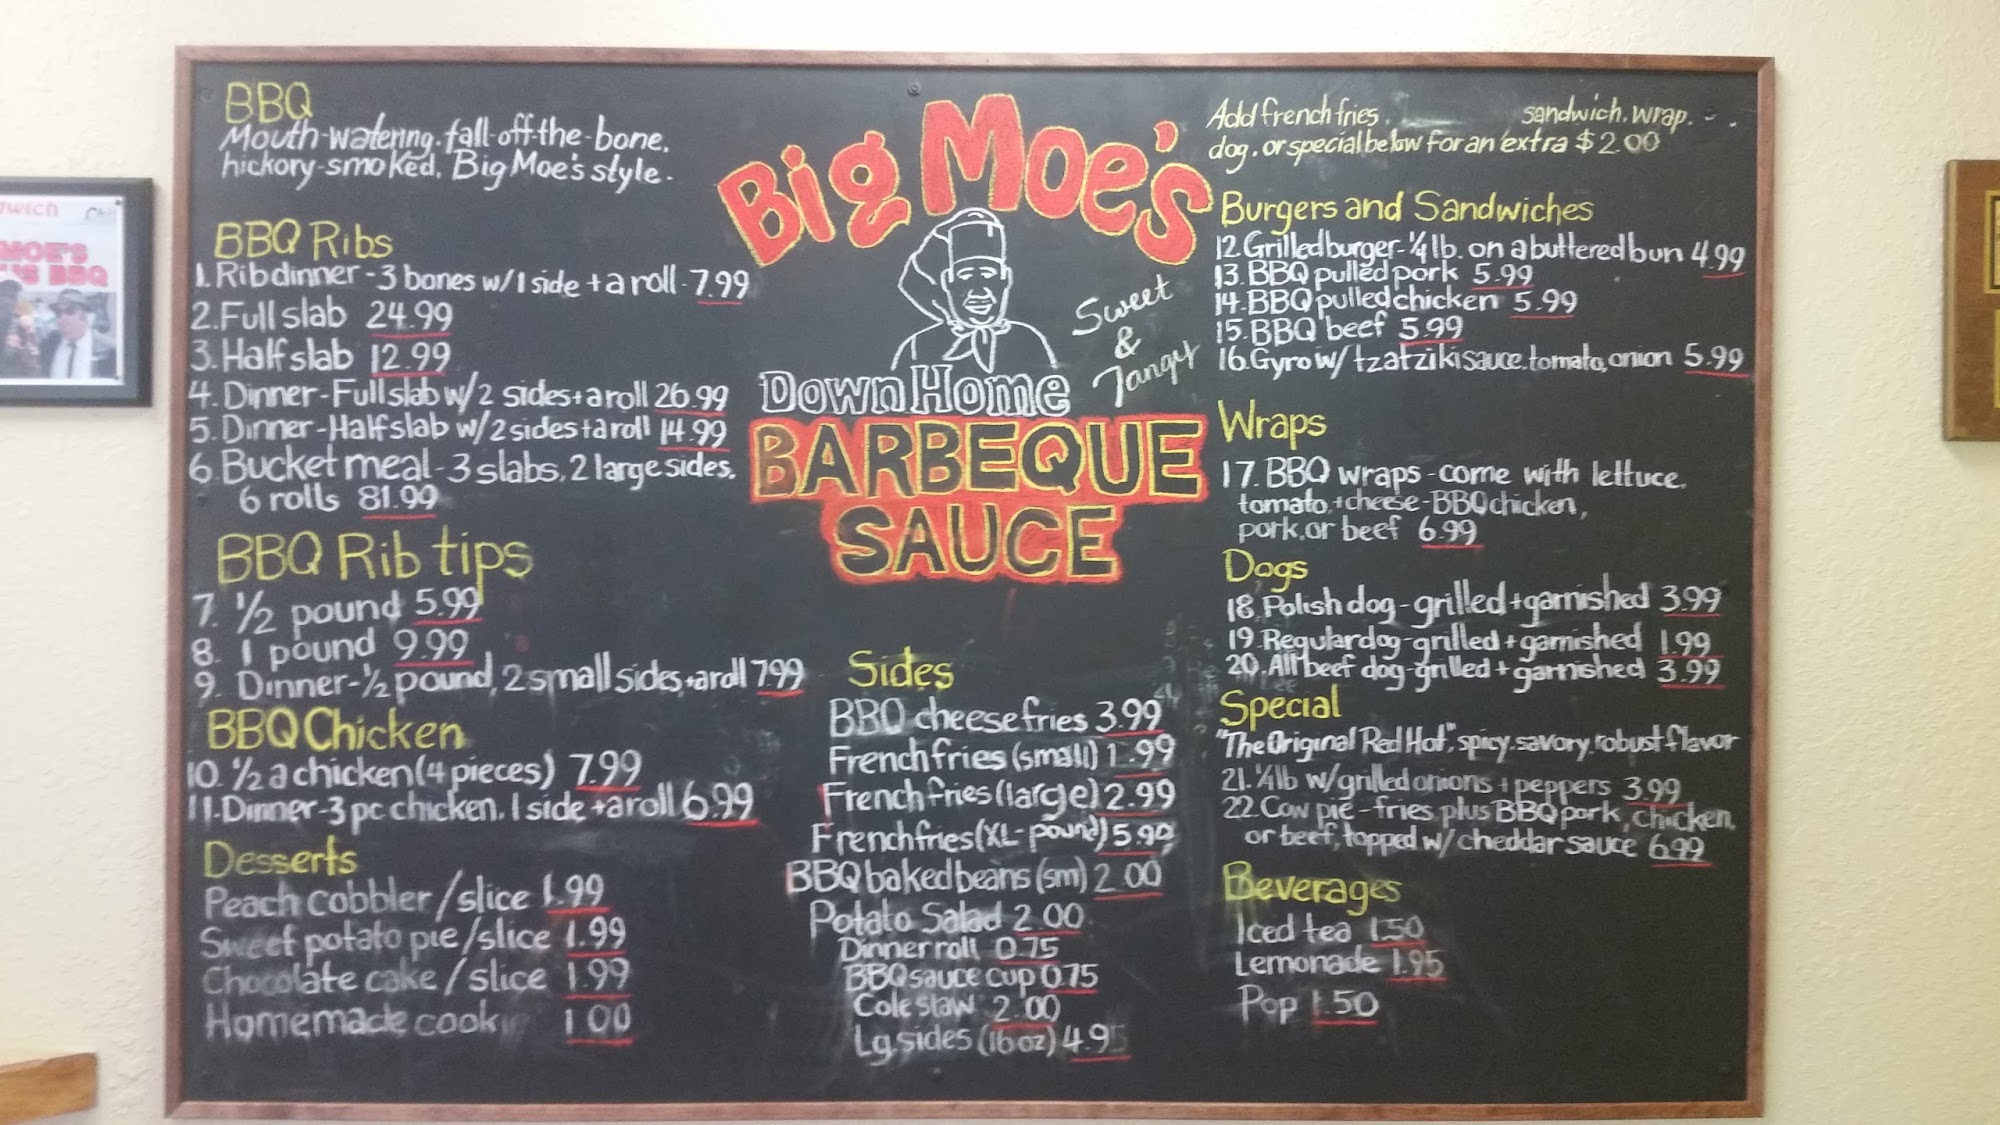 BBQ
Mouth-watering, fall-off-the-bone,
hickory-smoked, Big Moe's style.
BBQ Ribs
1. Rib dinner - 3 bones w/ 1 side + a roll - 7.99
2. Full slab 24.99
3. Half slab 12.99
4. Dinner - Full slab w/ 2 sides + a roll 26.99
5. Dinner - Half slab w/ 2 sides + a roll 14.99
6. Bucket meal - 3 slabs, 2 large sides,
6 rolls 81.99
BBQ Rib tips
7. 1/2 pound 5.99
8. 1 pound 9.99
9. Dinner - 1/2 pound, 2 small sides, + a roll 7.99
BBQ Chicken
10. 1/2 a chicken (4 pieces) 7.99
11. Dinner - 3 pc chicken, 1 side + a roll 6.99
Desserts
Peach cobbler/slice 1.99
Sweet potato pie/slice 1.99
Chocolate cake/slice 1.99
Homemade 1.00
Big Moe's
Sweet
&
Tangy
Down Home
BARBEQUE
SAUCE
Sides
BBQ cheese fries 3.99
French fries (small) 1.99
French fries (large) 2.99
French fries (XL - pound) 5.99
BBQ baked beans (sm) 2.00
Potato Salad 2.00
Dinner roll 0.75
BBQ sauce cup 0.75
Cole slaw 2.00
Lg. sides (16 oz)
Add french fries, sandwich, wrap,
dog, or special below for an extra $2.00
Burgers and Sandwiches
12. Grilled burger - 1/4 lb. on a buttered bun 4.99
13. BBQ pulled pork 5.99
14. BBQ pulled chicken 5.99
15. BBQ beef 5.99
16. Gyro w/ tzatziki sauce, tomato, onion 5.99
Wraps
17. BBQ wraps - come with lettuce,
tomato, + cheese - BBQ chicken,
pork, or beef 6.99
Dogs
18. Polish dog - grilled + garnished 3.99
19. Regular dog - grilled + garnished 1.99
20. All beef dog - grilled + garnished 3.99
Special
"The Original Red Hot", spicy, savory, robust flavor
21. 1/4 lb w/ grilled onions + peppers 3.99
22. Cow pie - fries plus BBQ pork, chicken,
or beef, topped w/ cheddar sauce 6.99
Beverages
Iced tea 1.50
Lemonade 1.95
Pop 1.50